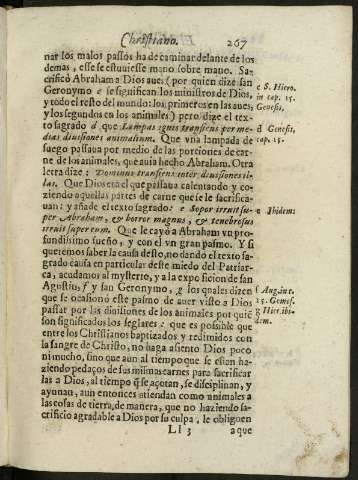 Christiano. 267
nar los malos passos ha de caminar delante de los
demas, esse se estuuiesse mano sobre mano. Sa-
crificò Abraham a Dios aues (por quien dize san
Geronymo e se significan los ministros de Dios,
y todo el resto del mundo: los primeros en las aues,
y los segundos en los animales) pero dize el tex-
to sagrado d que Lampas ignis transiens per me-
dias diuisiones animalium. Que vna lampada de
fuego passaua por medio de las porciones de car-
ne de los animales, que auia hecho Abraham. Otra
letra dize: Dominus transiens inter diuisiones il-
las. Que Dios era el que passaua calentando y co-
ziendo aquellas partes de carne que se le sacrifica-
uan: y añade el texto sagrado: e Sopor irruit su-
per Abraham, & horror magnus, & tenebrosus
irruit super eum. Que le cayò a Abraham vn pro-
fundissimo sueño, y con el vn gran pasmo. Y si
queremos saber la causa desto, no dando el texto sa-
grado causa en particular deste miedo del Patriar-
ca, acudamos al mysterio, y a la exposicion de san
Agustin, f y san Geronymo, g los quales dizen
que se ocasionò este pasmo de auer visto a Dios
passar por las diuisiones de los animales por quiē
son significados los seglares: que es possible que
entre los Christianos baptizados y redimidos con
la sangre de Christo, no haga assiento Dios poco
ni mucho, sino que aun al tiempo que se estan ha-
ziendo pedaços de sus mismas carnes para sacrificar
las a Dios, al tiempo q̄ se açotan, se disciplinan, y
ayunan, aun entonces atiendan como animales a
las cosas de tierra, de manera, que no haziendo sa-
crificio agradable a Dios por su culpa, le obliguen
Ll 3 a que
c S. Hiero.
in cap. 15.
Genesis.
d Genesis,
cap. 15.
e Ibidem.
f Aug. in c.
15. Genes.
g Hier. ibi-
dem.